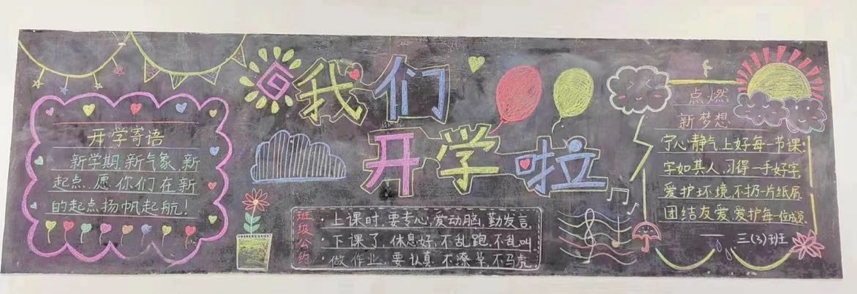 我们
开学啦
开学寄语
新学期,新气象,新
起点,愿你们在新
的起点扬帆起航!
班级公约
·上课时,要专心,爱动脑,勤发言,
·下课了,休息好,不乱跑,不乱叫
·做作业,要认真,不潦草,不马虎,
点燃
新梦想
宁心静气上好每一节课:
字如其人,习得一手好字,
爱护环境,不扔一片纸屑
团结友爱,爱护每一位成员
——三(3)班